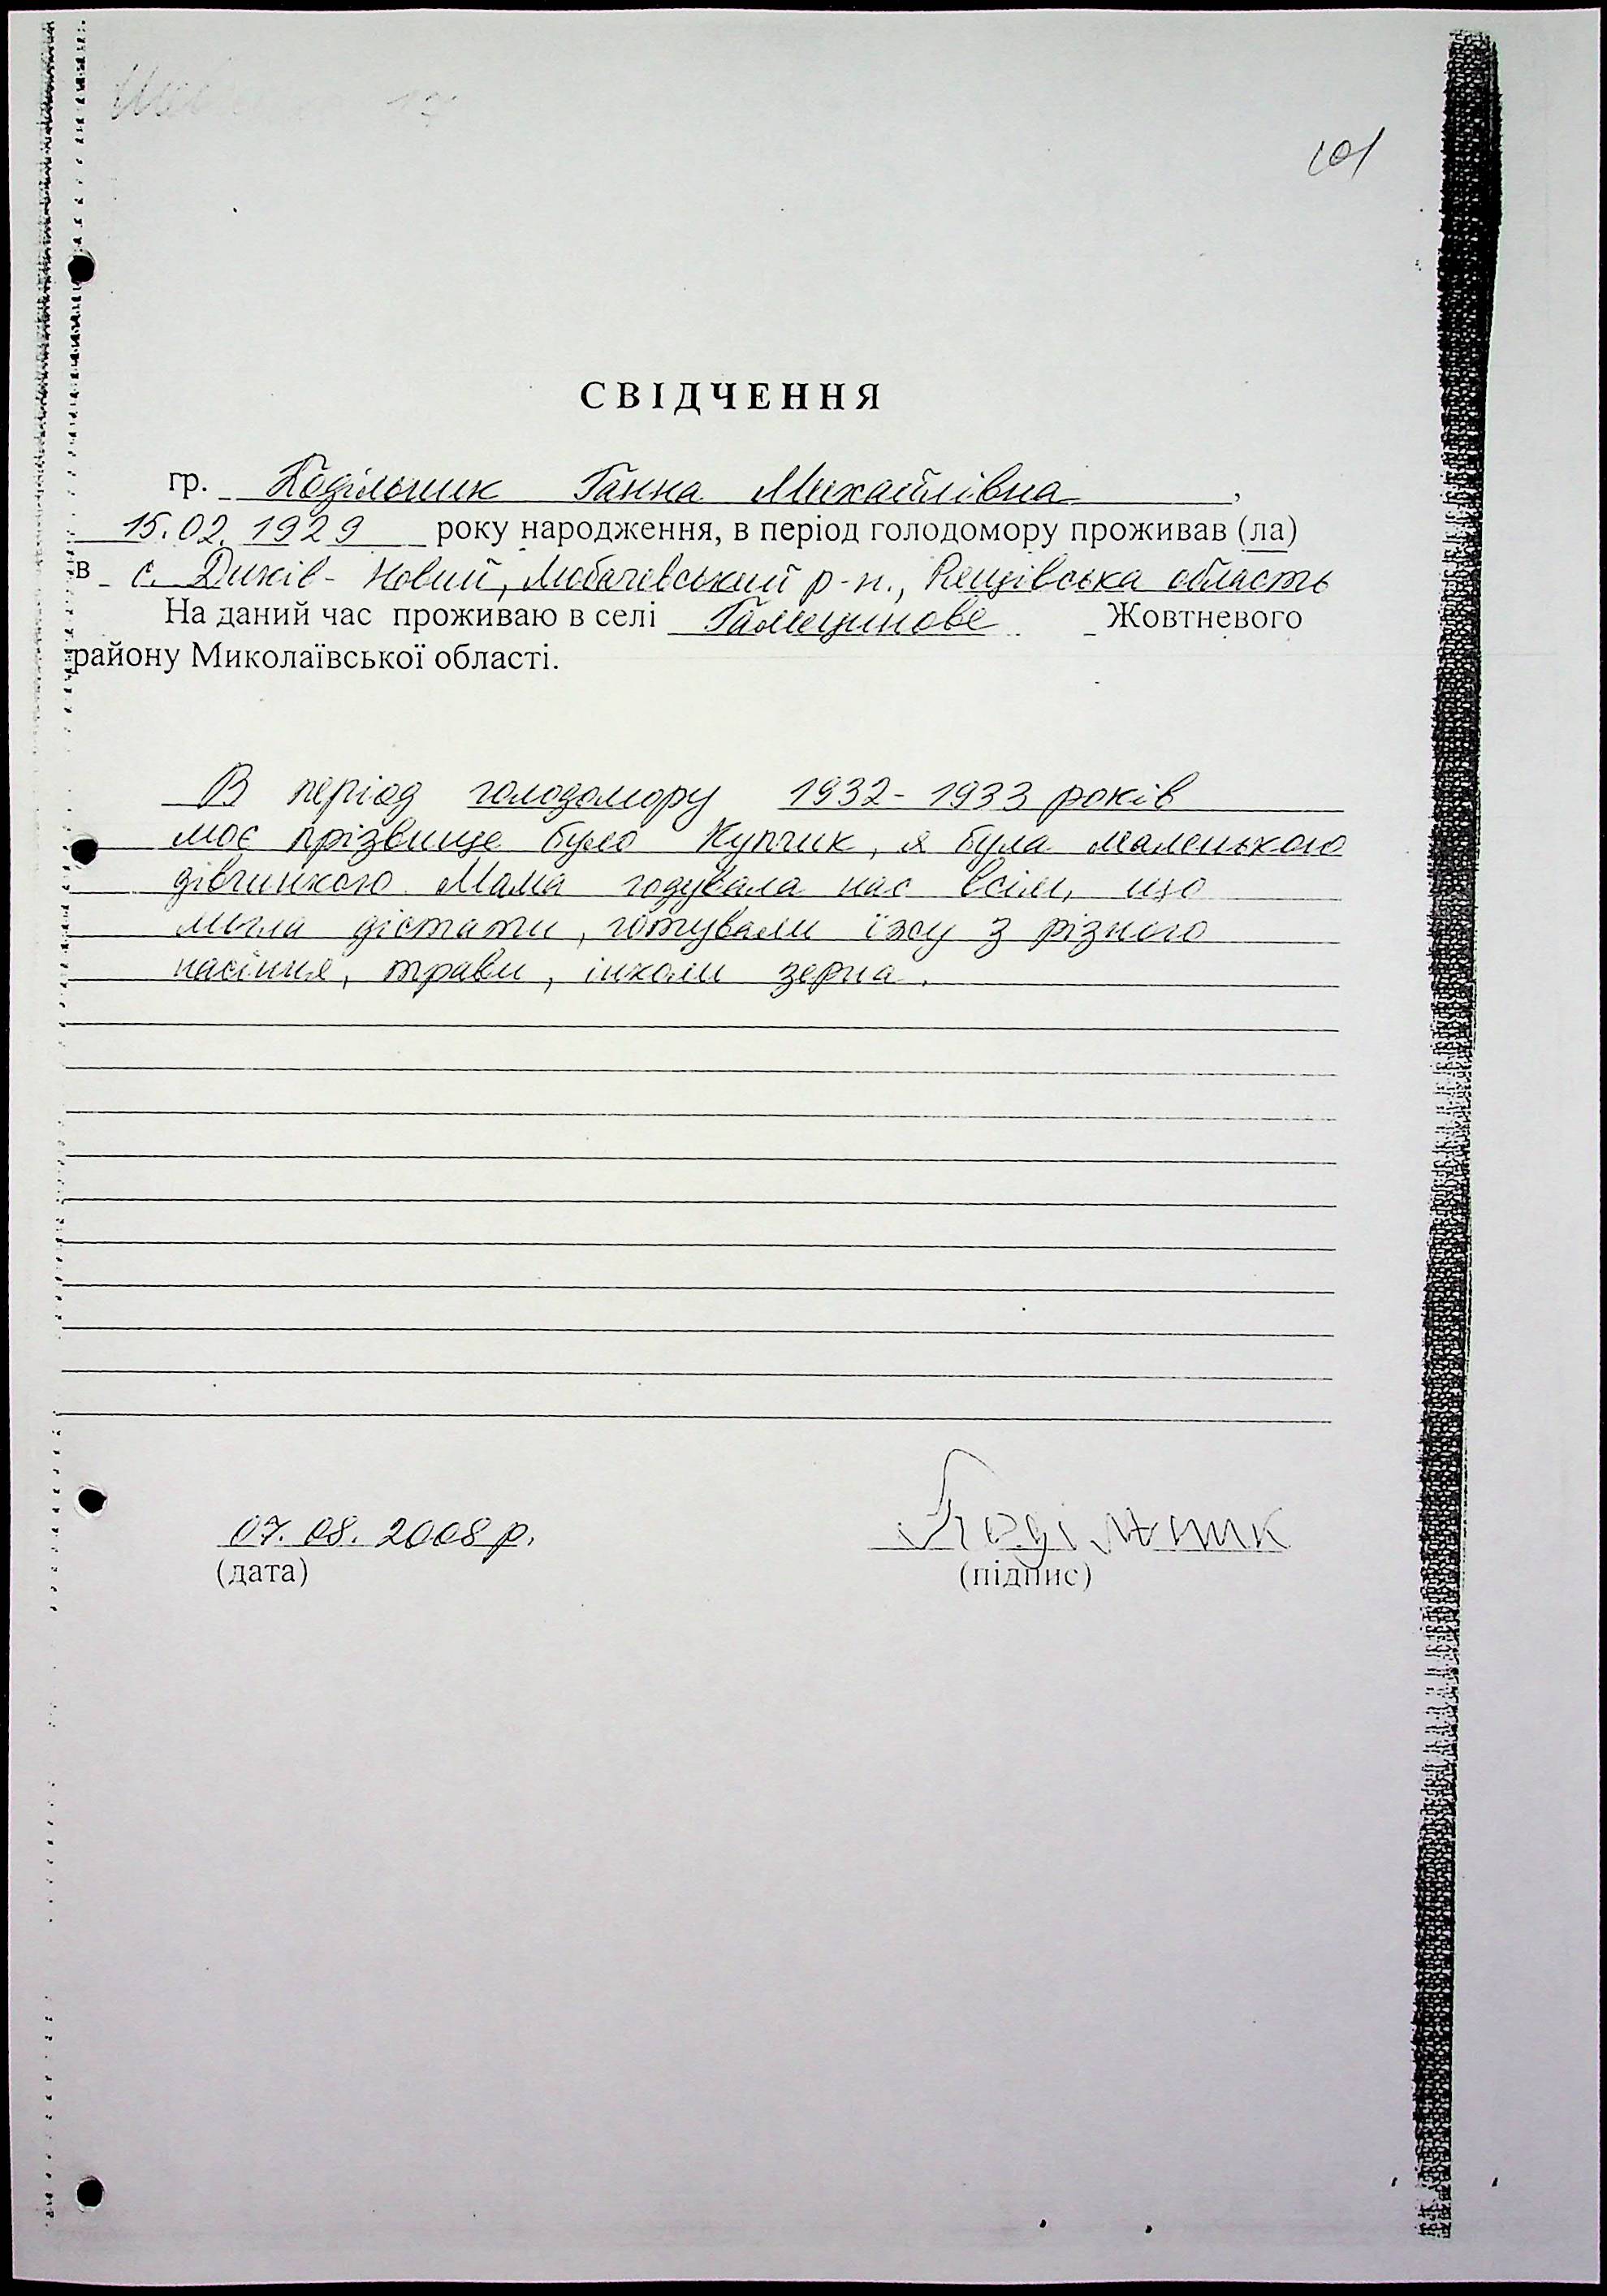 101
СВІДЧЕННЯ
гр. Подільчик Ганна Михайлівна,
15.02.1929 року народження, в період голодомору проживав (ла)
в с. Диків-Новий, Любачівський р-н., Ряшівська область
На даний час проживаю в селі Галицинове Жовтневого
району Миколаївської області.
В період голодомору 1932-1933 років
моє прізвище було Купчик, я була маленькою
дівчинкою. Мама годувала нас всім, що
могла дістати, готували їжу з різного
насіння, трави, інколи зерна.
07.08.2008 р.
(дата)
(підпис)